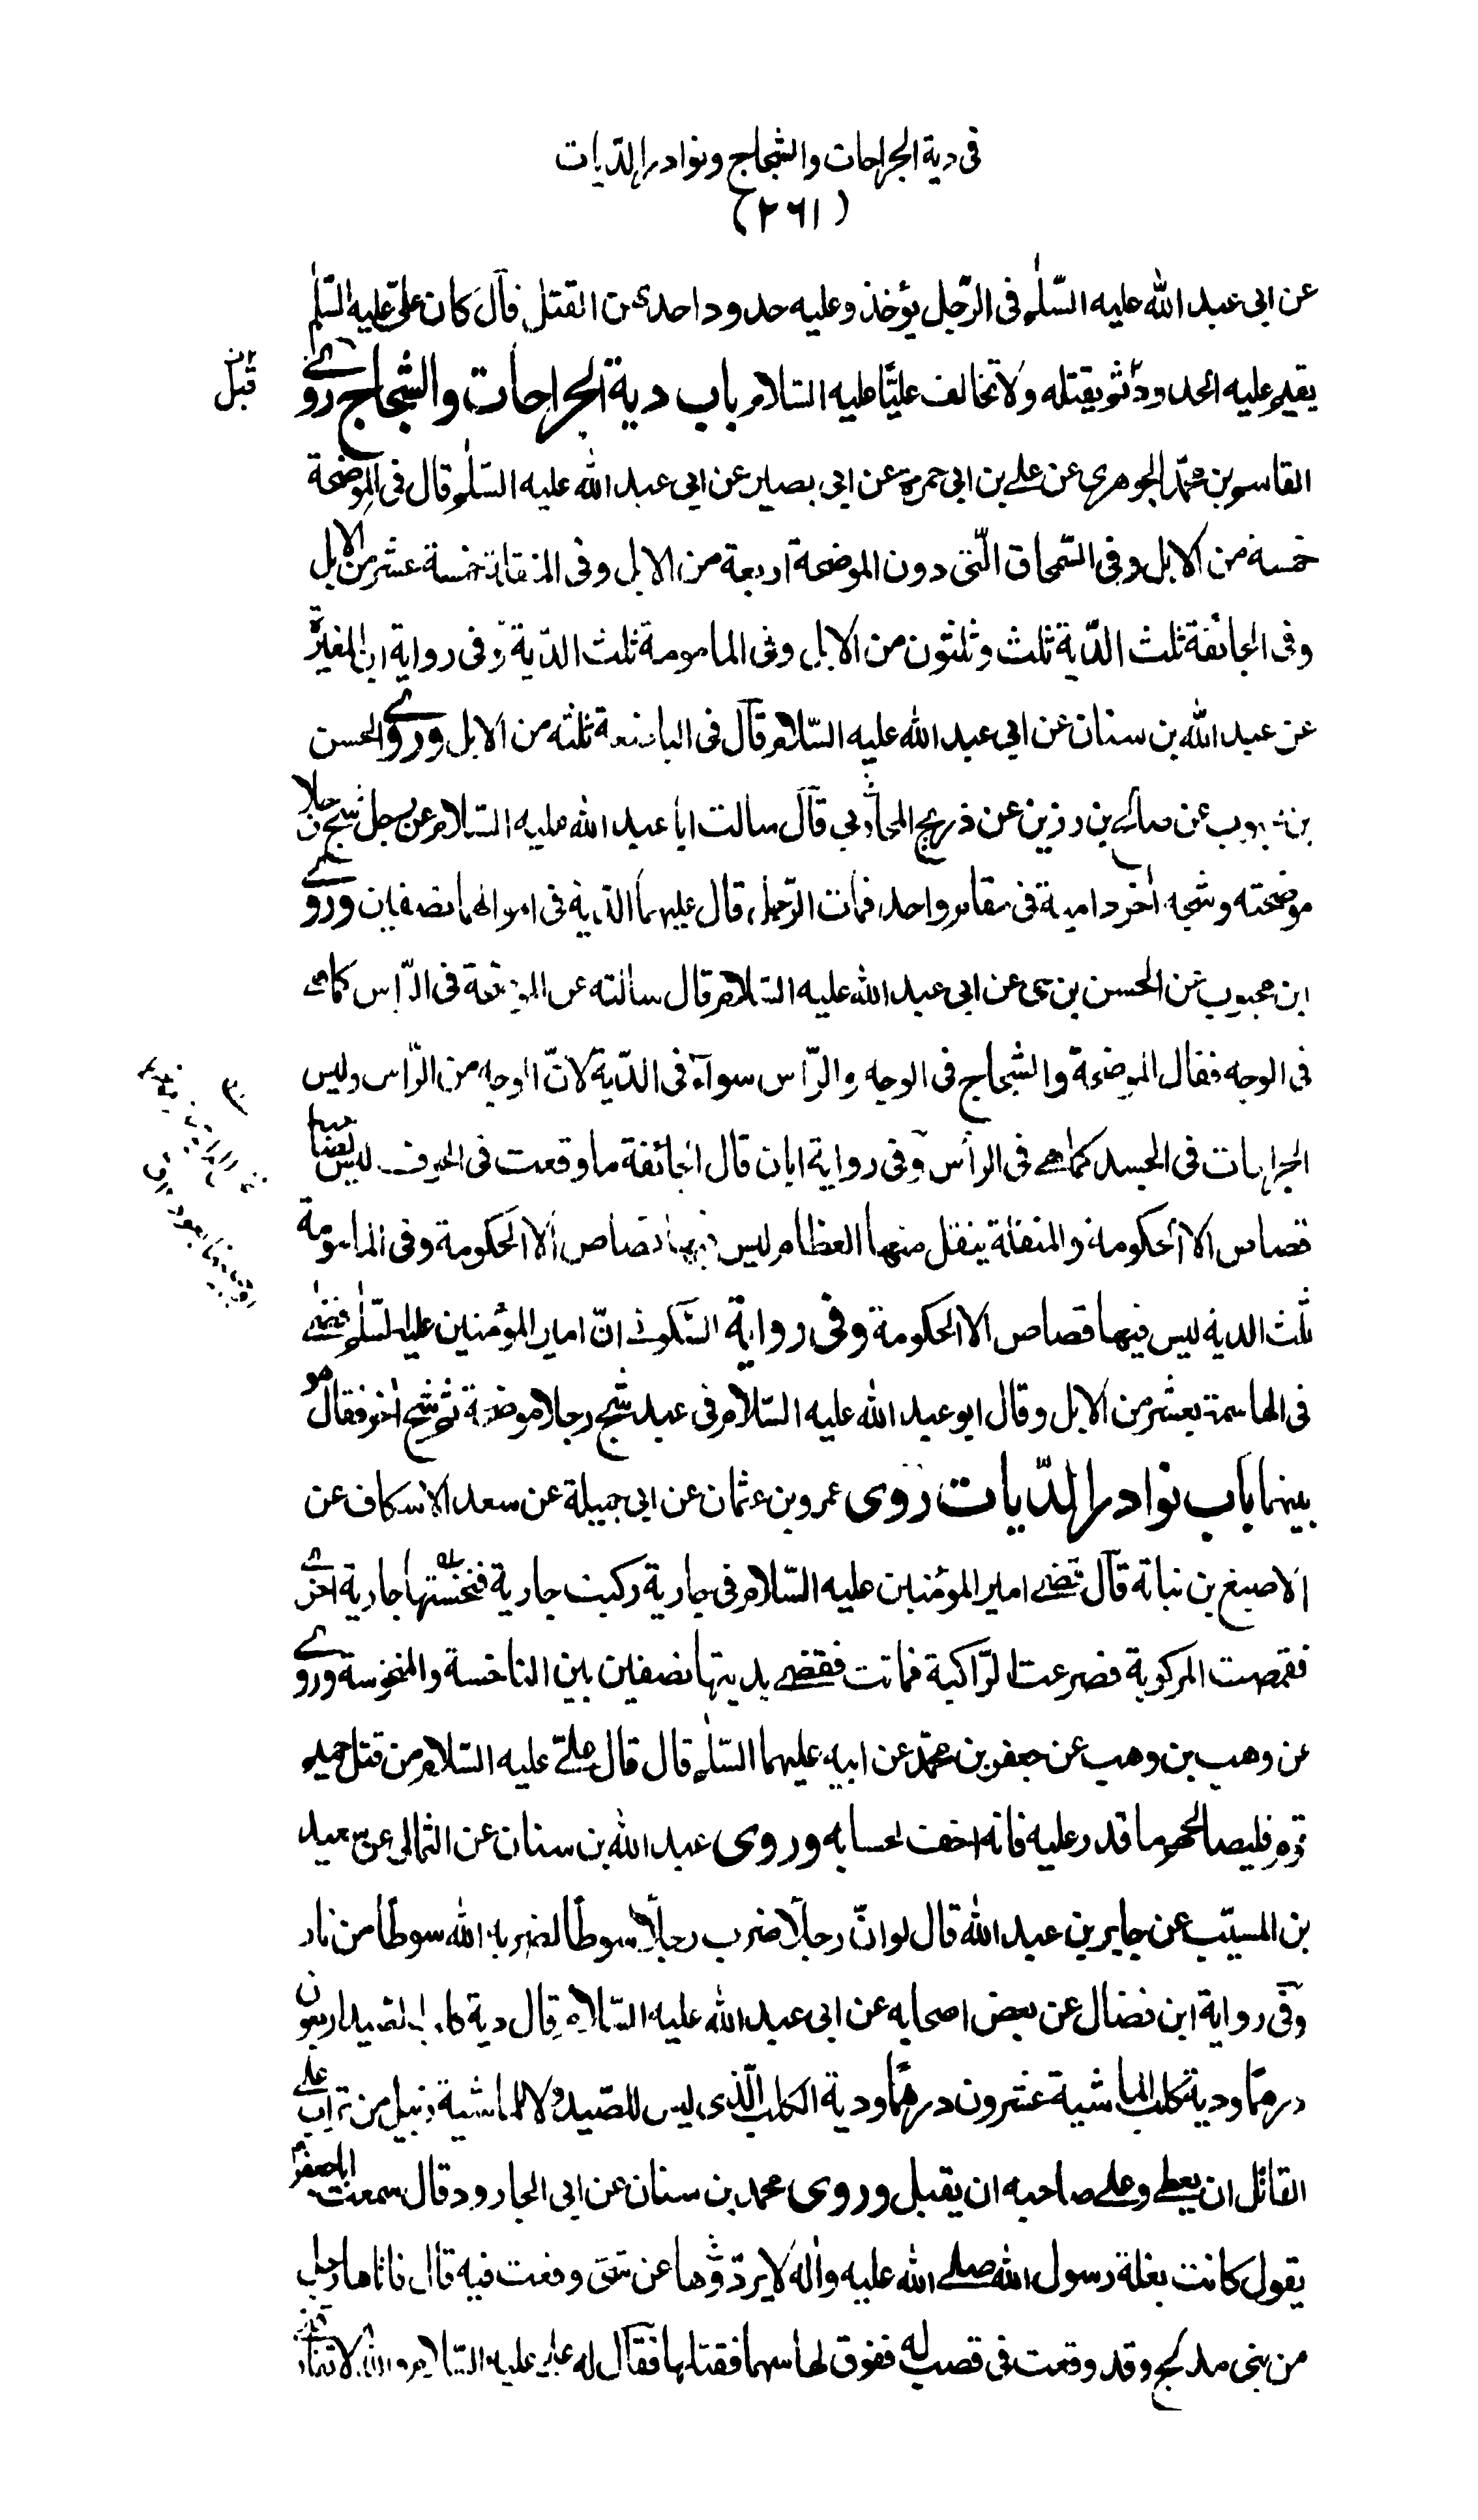 فى دية الجراحات والشجاج ونوادر الديات
(٢٦١)
عن ابى عبد الله عليه السّلم فى الرّجل يؤخذ وعليه حدود احدىهن القتل قال كان علىّ عليه السّلم
يقيم عليه الحدود ثم يقتله ولا تخالف عليّا عليه السّلام باب دية الجراحات والشجاج روى
القاسم بن محمّد الجوهرى عن على بن ابى حمزة عن ابى بصير عن ابى عبد الله عليه السّلم قال فى الموضحة
خمسة من الابل وفى السّمحاق الّتى دون الموضحة اربعة من الابل وفى المنقلة خمسة عشر من الابل
وفى الجائفة ثلث الدّية ثلث وثلثون من الابل وفى المامومة ثلث الدّية وفى رواية ابن المغيرة
عن عبد الله بن سنان عن ابى عبد الله عليه السّلام قال فى الباضعة ثلثه من الابل وروى الحسن
بن محبوب عن صالح بن رزين عن ذريح المحاربى قال سالت ابا عبد الله عليه السّلام عن رجل شج رجلا
موضحته وشجه اخر دامية فى مقام واحد فمات الرّجل قال عليهما الدّية فى اموالهما نصفين وروى
ابن محبوب عن الحسن بن حى عن ابى عبد الله عليه السّلام قال سالته عن الموضحة فى الرّاس كما هى
فى الوجه فقال الموضحة والشجاج فى الوجه والرّاس سوآء فى الدّية لانّ الوجه من الرّاس وليس
الجراحات فى الجسد كما هى فى الراس وفى رواية ابان قال الجائفة ما وقعت فى الجوف ليس لصاحبها
قصاص الا الحكومة والمنقلة ينقل منها العظام وليس فيها قصاص الا الحكومة وفى المامومة
ثلث الدية ليس فيها قصاص الا الحكومة وفى رواية السّكونى انّ امير المؤمنين عليه السّلم قضى
فى الهاشمة بعشر من الابل وقال ابو عبد الله عليه السّلام فى عبد شج رجلا موضحة ثم شج اخر فقال هو
بينهما باب نوادر الدّيات روى عمرو بن عثمان عن ابى جميلة عن سعد الاسكاف عن
الاصبغ بن نباتة قال قضى امير المؤمنين عليه السّلام فى جارية ركبت جارية فنخستها جارية اخرى
فقمصت المركوبة فصرعت الرّاكبة فماتت فقضى بديتها نصفين بين الناخسة والمنخوسة وروى
عن وهب بن وهب عن جعفر بن محمّد عن ابيه عليهما السّلم قال قال علىّ عليه السّلام من قتل حميم
قوم فليصالحهم ما قدر عليه فانه اخف لحسابه وروى عبد الله بن سنان عن الثمالى عن سعيد
بن المسيّب عن جابر بن عبد الله قال لو انّ رجلا ضرب رجلا سوطا لضربه الله سوطا من نار
وفى رواية ابن فضال عن بعض اصحابه عن ابى عبد الله عليه السّلام قال دية كلب الصيد اربعون
درهما ودية كلب الماشية عشرون درهما ودية الكلب الّذى ليس للصّيد ولا للماشية زنبيل من تراب على
القاتل ان يعطى وعلى صاحبه ان يقبل وروى محمد بن سنان عن ابى الجارود قال سمعت ابا جعفر
يقول كانت بغلة رسول الله صلى الله عليه واله لا يردّوها عن شئ وقعت فيه قال فاتاها رجل
من بنى مدلج وقد وقعت فى قصب له ففوق لها سهما فقتلها فقال له على عليه السّلام والله لا تفارقنى
قبل